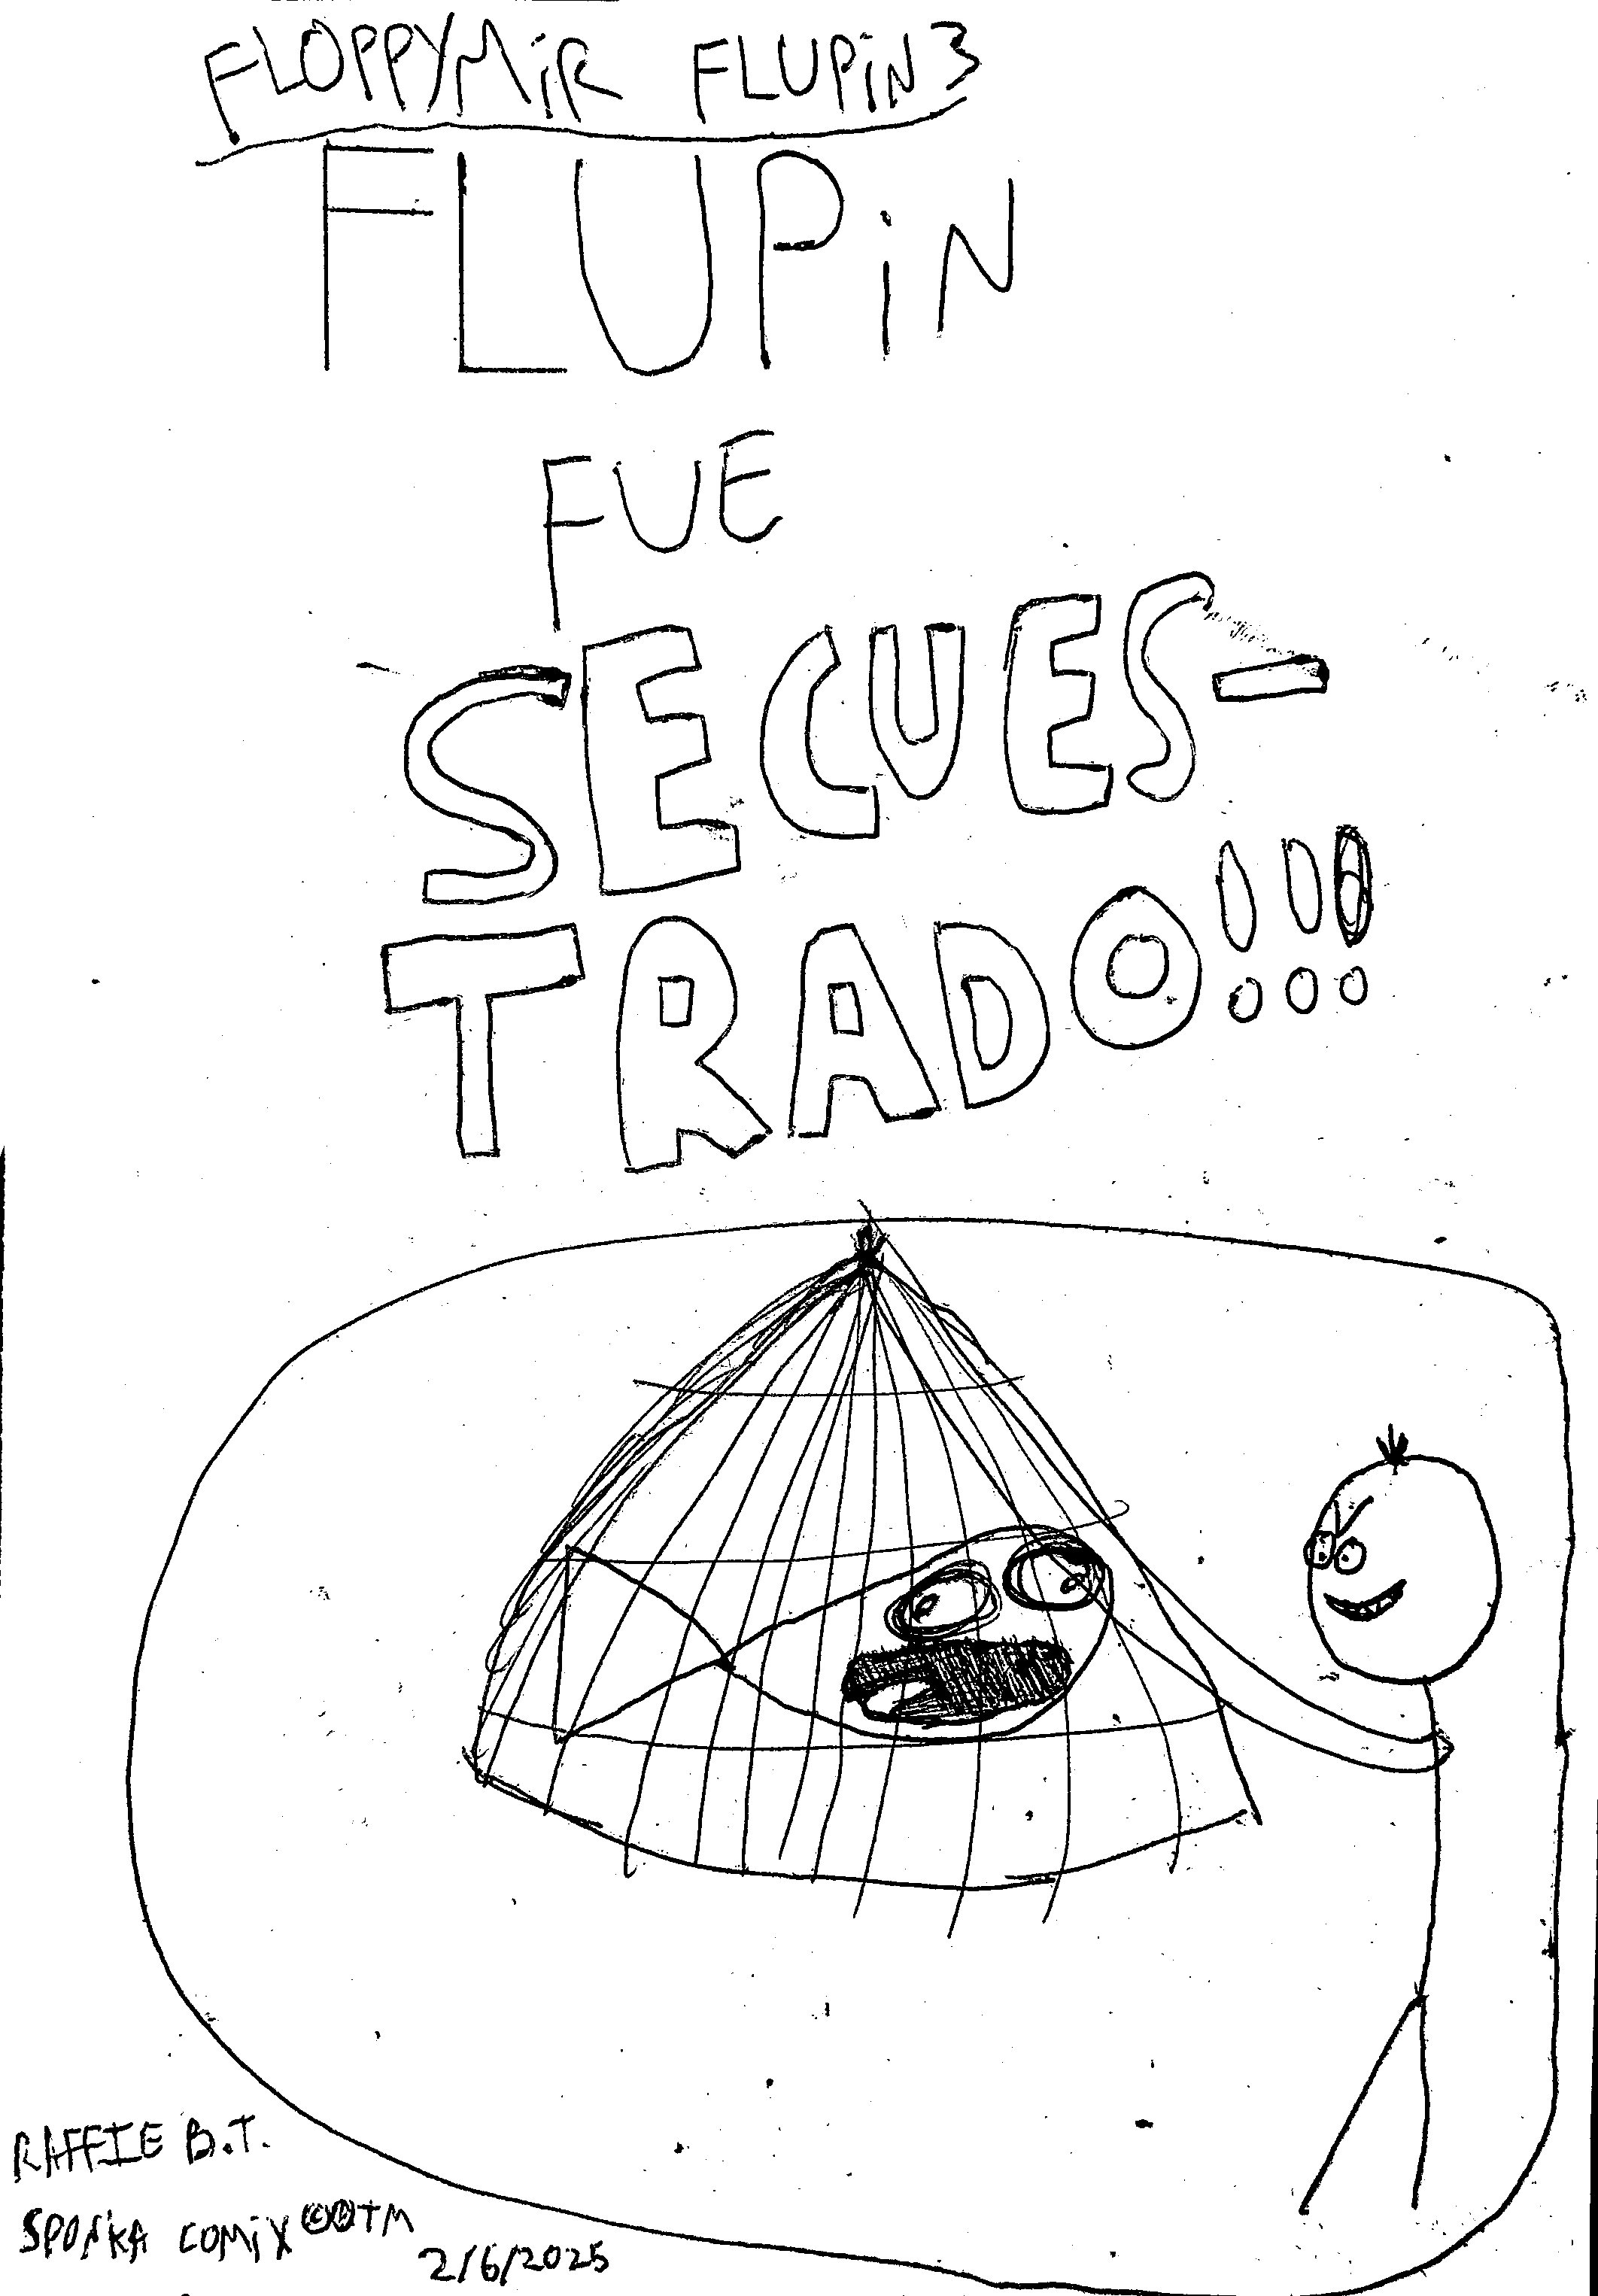 FLOPPYMiR FLUPiN 3
FLUPiN
FUE
SECUES-
TRADO!!!
RAFFIE B.T.
SPONKA COMiX ©®TM
2/6/2025